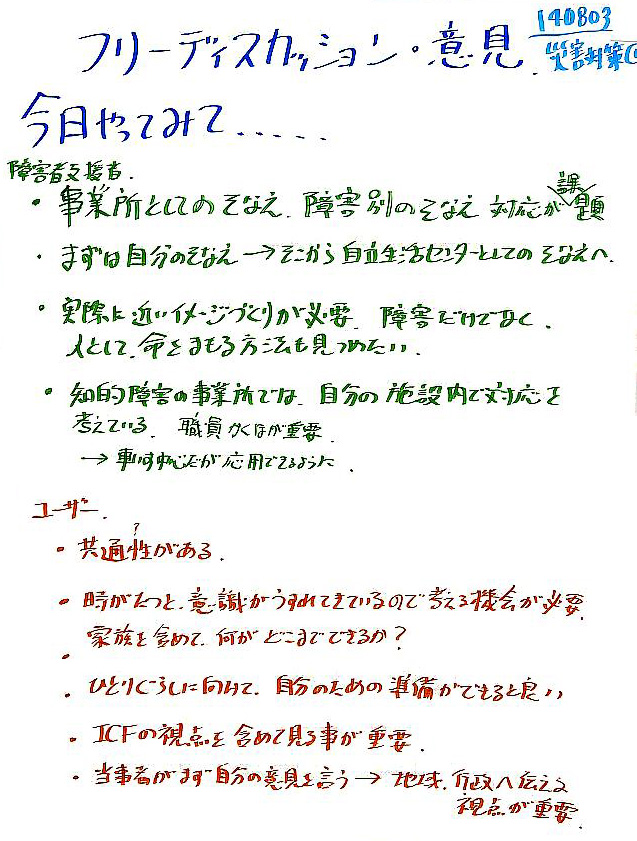 140803
災害対策
フリーディスカッション・意見
今日やってみて.....
障害者支援者.
・事業所としてのそなえ、障害別のそなえ 対応が課題
・まずは自分のそなえ→そこから自立生活センターとしてのそなえへ
・実際に近いイメージづくりが必要 障害だけでなく、
人として、命をまもる方法も見つめたい。
・知的障害の事業所では、自分の施設内で対応を
考えている、職員かくほが重要
→車いす中心だが応用できるように、
ユーザー、
・共通性がある、
?
・時がたつと、意識がうすれてきているので考える機会が必要、
家族を含めて、何がどこまでできるか？
・
・ひとりぐらしに向けて、自分のための準備ができると良い
・ICFの視点を含めて見る事が重要、
・当事者がまず自分の意見を言う→地域、行政へ伝える
視点が重要、